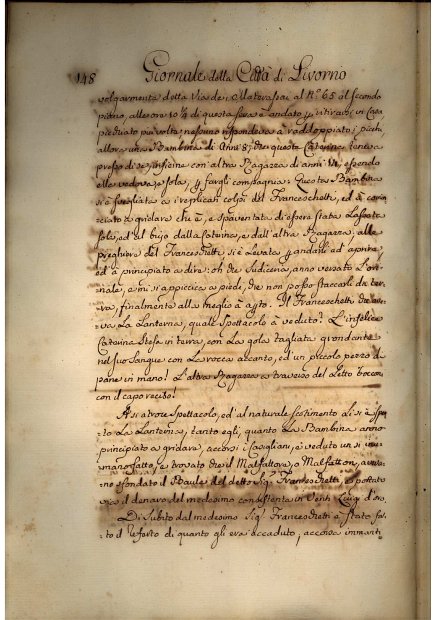 148 Giornale della Città di Livorno
volgarmente detta Via de Materassai al N.° 65 al secondo
piano, alle ore 10 1/4 di questa sera è andato p ritirarsi in Casa
picchiato più volte nessuno rispondeva à raddoppiato i picchi
allora una Bambina di Anni 8; che questa Caterina teneva
presso di se, insieme con altra Ragazza di anni essendo
ella vedova, e sola, p fargli compagnia: Questa Bambina
si è svegliata a i replicati colpi del Franceschetti, ed à comin
ciato a gridare che è, e spaventata di essere stata Lasciata
sola, ed al bujo dalla Caterina, e dall'altra Ragazza, alle
preghiere del Franceschetti si è Levata p andarli ad aprire,
ed à principiato a dire: oh che sudiceria, anno versato L'ori=
nale, e mi si appiccica a piedi, che non posso staccarli da ter=
ra, finalmente alla meglio à apto. Il Franceschetti che
La Lanterna, quale Spettacolo à veduto! L'infelice
Caterina stesa in terra, con La gola tagliata grondante
nel suo Sangue con La rocca accanto, ed un piccolo pezzo di
pane in mano! L'altra Ragazza a traverso del Letto
con il capo reciso!
A si atroce spettacolo, ed al naturale sentimento Li si è spen
to La Lanterna, tanto egli, quanto La Bambina anno
principiato a gridare, accorsi i Casigliani, è veduto un si
manosfatto, e trovato che il Malfattore, o Malfattori, aveva
no sfondato il Baule del detto Sig.r Franceschetti, e portato
via il denaro del medesimo consistente in Venti Luigi d'oro.
Di Subito dal medesimo Sig.r Franceschetti è stato fat
to il referto di quanto gli era accaduto, accorse immanti